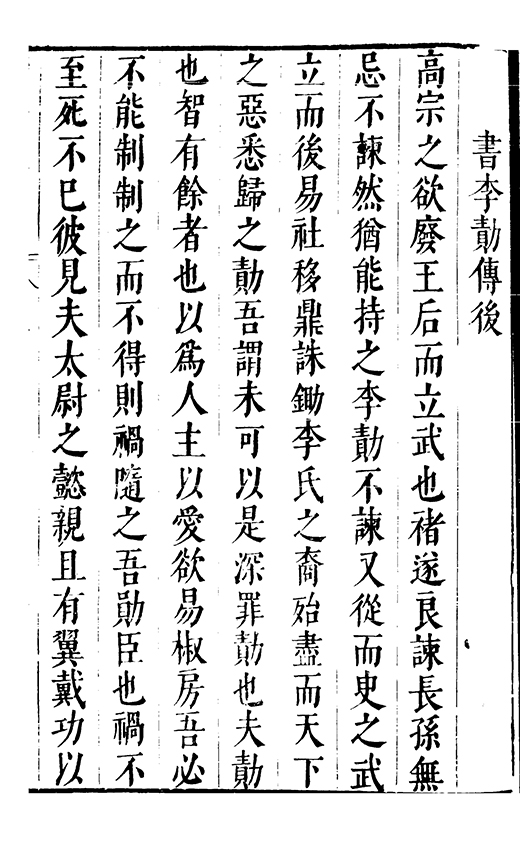 書李勣傳後
高宗之欲廢王后而立武也褚遂良諫長孫無
忌不諫然猶能持之李勣不諫又從而㕜之武
立而後易社移鼎誅鋤李氏之裔殆盡而天下
之惡悉歸之勣吾謂未可以是深罪勣也夫勣
也智有餘者也以爲人主以愛欲易椒房吾必
不能制制之而不得則禍隨之吾勛臣也禍不
至死不巳彼見夫太尉之懿親且有翼戴功以